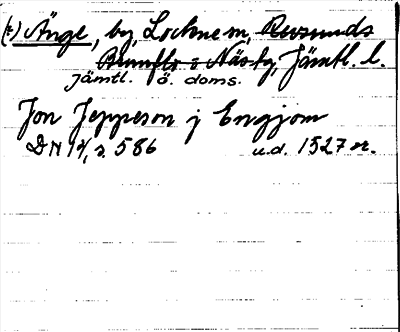 (±) Änge, by, Lockne sn, Revsunds
Brunflo o Näs tg, Jämtl. l.
Jämtl. ö. doms.
Jon Jeppeson j Engjom
DN 14, s. 586 u.d. 1527 or.